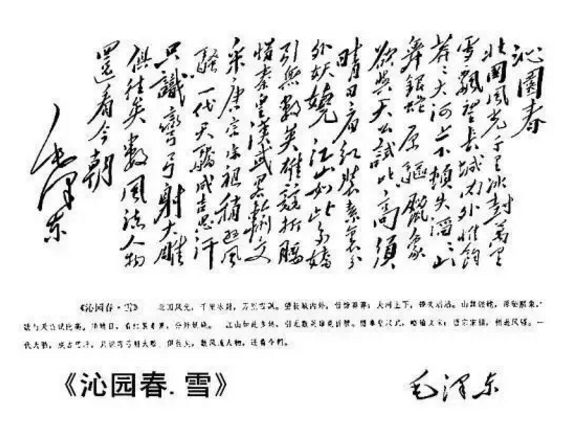 沁園春
北國風光千里冰封萬里
雪飄望長城内外惟餘
莽々大河上下頓失滔々山
舞銀蛇原驅臘象
欲與天公試比高須
晴日看紅裝素裹分
外妖嬈江山如此多嬌
引無數英雄競折腰
惜秦皇漢武略輸文
采唐宗宋祖稍遜風
騷一代天驕成吉思汗
只識彎弓射大雕
俱往矣數風流人物
還看今朝
毛泽东
《沁园春·雪》 北国风光，千里冰封，万里雪飘。望长城内外，惟馀莽莽；大河上下，顿失滔滔。山舞银蛇，原驰蜡象，
欲与天公试比高。须晴日，看红装素裹，分外妖娆。 江山如此多娇，引无数英雄竞折腰。惜秦皇汉武，略输文采；唐宗宋祖，稍逊风骚。一
代天骄，成吉思汗，只识弯弓射大雕。俱往矣，数风流人物，还看今朝。
《沁园春.雪》
毛泽东